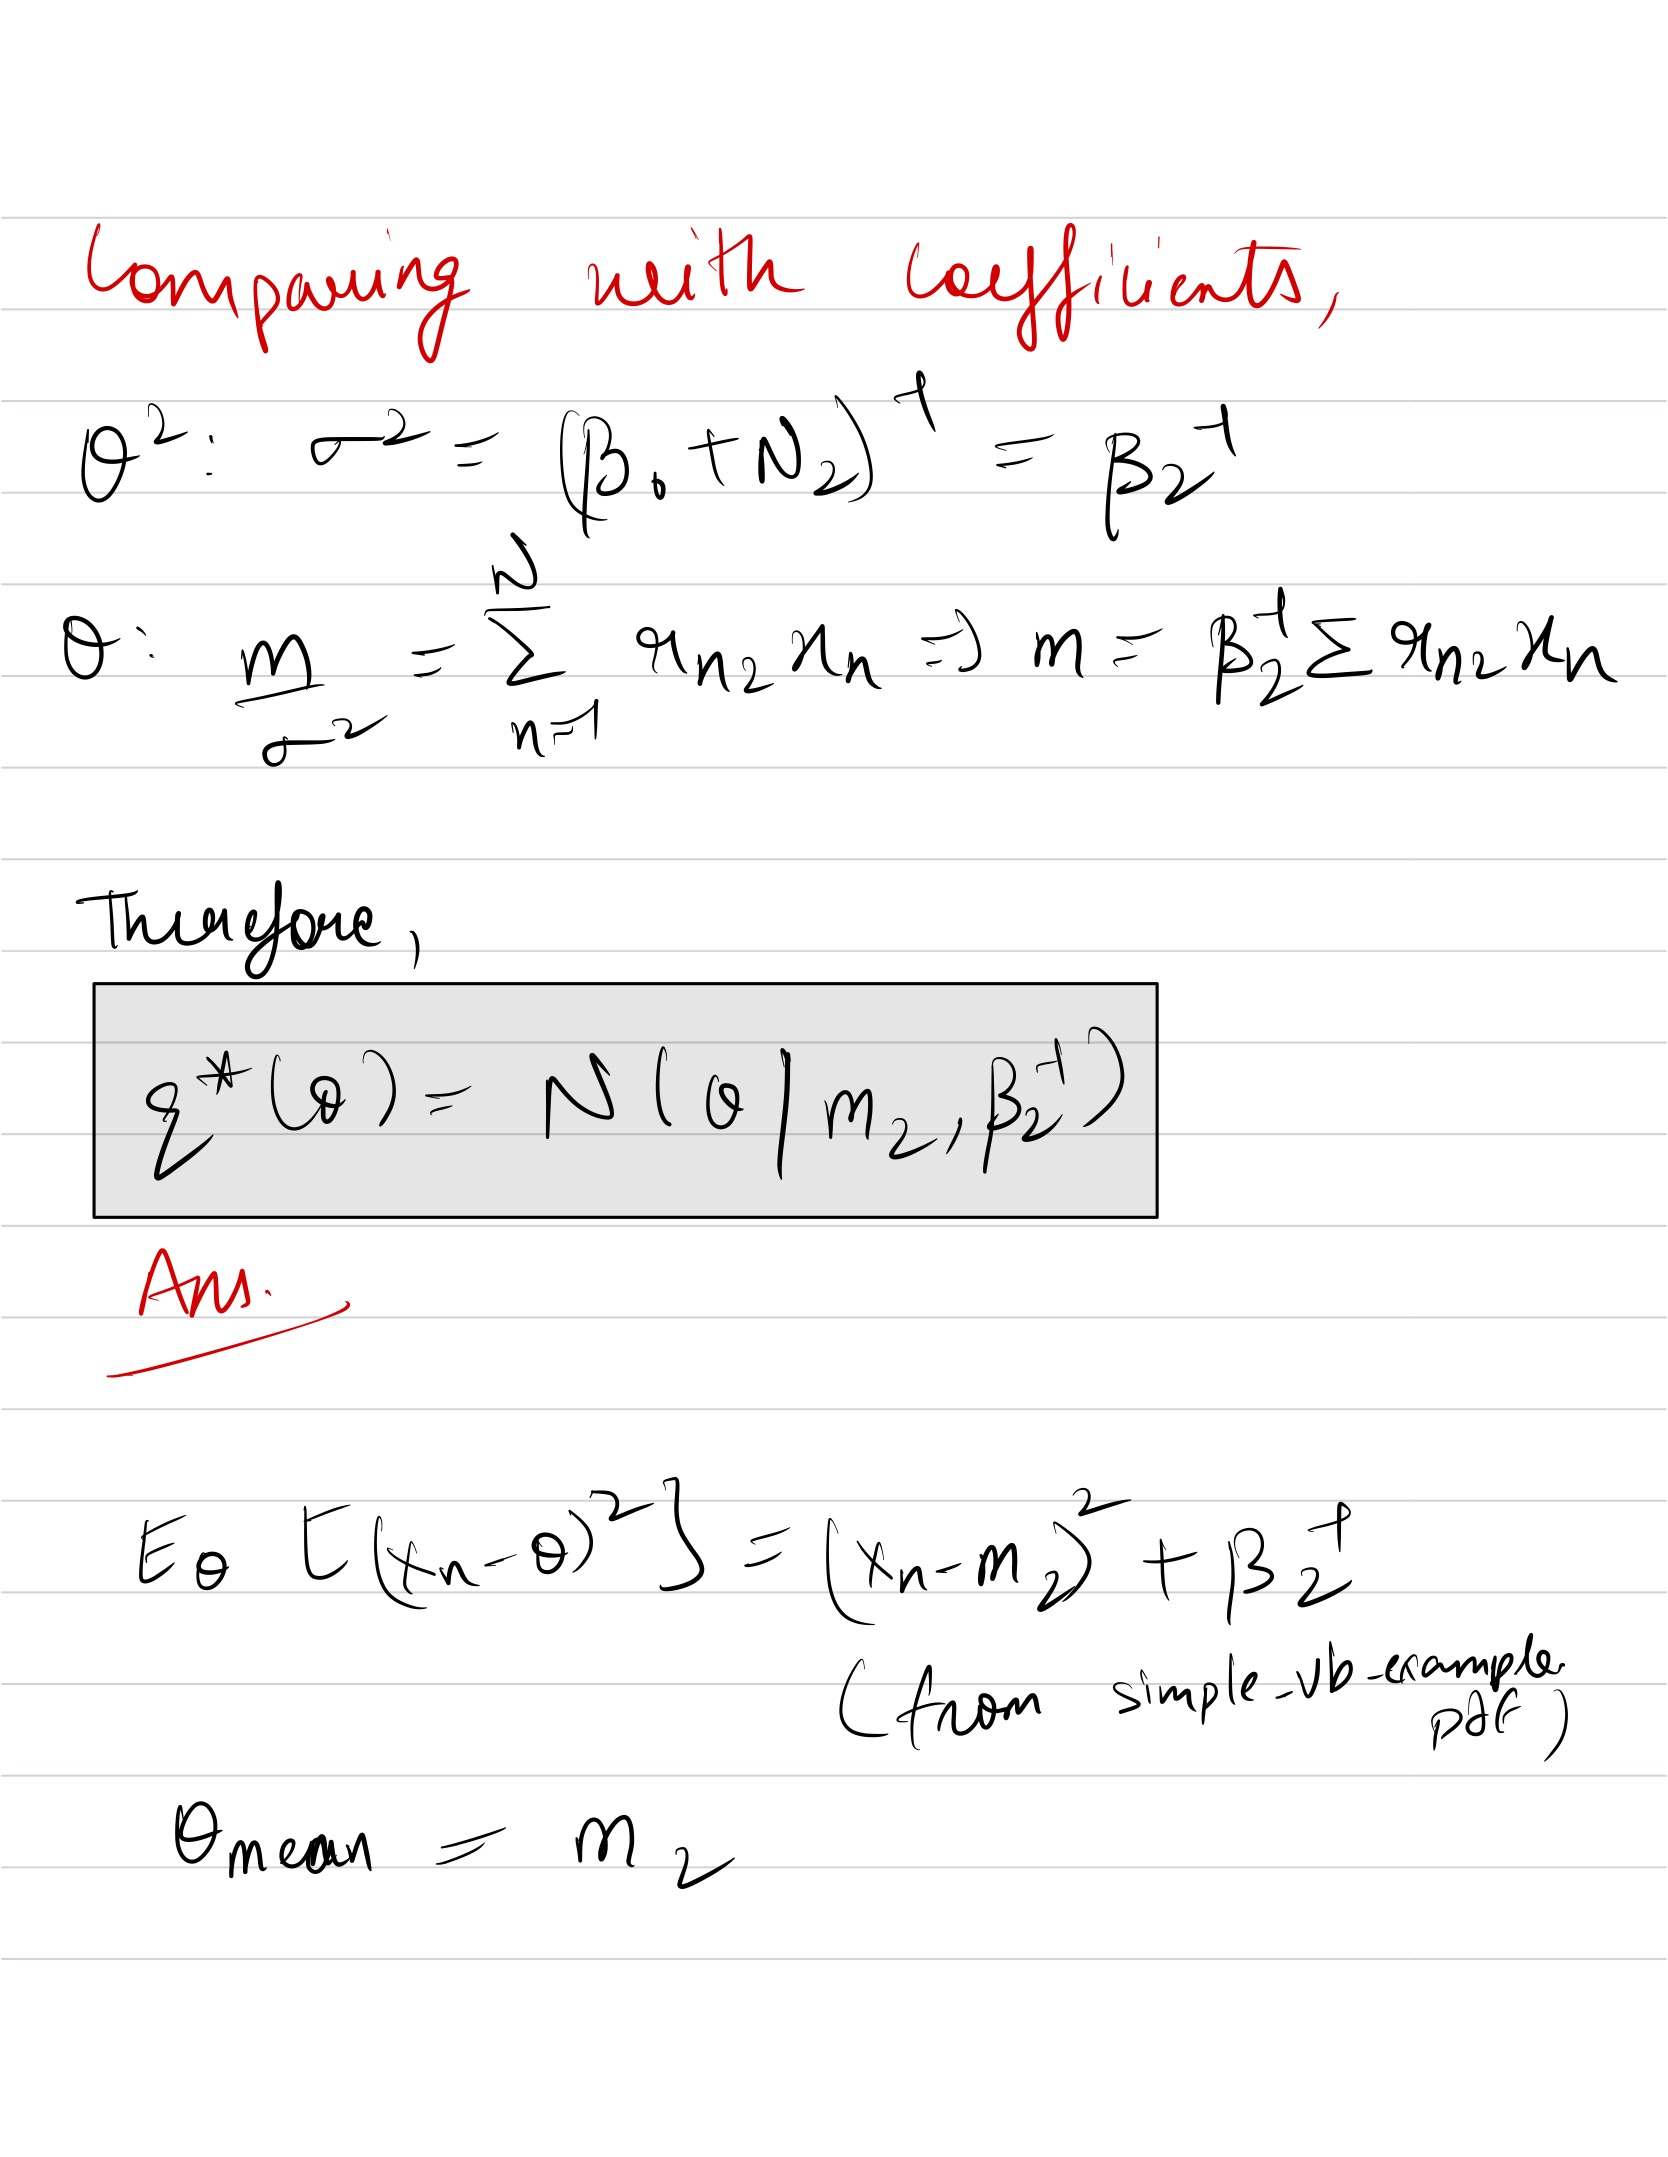 Comparing with Coefficients,
θ²: σ² = (β₀ + N₂)⁻¹ = β₂⁻¹
θ: m/σ² = ∑ₙ₌₁ᴺ rₙ₂ xₙ ⇒ m = β₂⁻¹ ∑ rₙ₂ xₙ
Therefore,
q*(θ) = N(θ | m₂, β₂⁻¹)
Ans.
E_θ [(xₙ - θ)²] = (xₙ - m₂)² + β₂⁻¹
(from simple-vb-example
pdf)
θ_mean = m₂